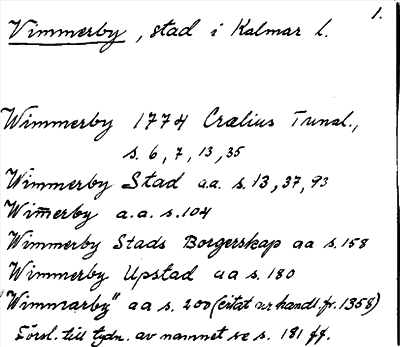 1.
Vimmerby, stad i Kalmar l.
Wimmerby 1774 Crælius Tunal.,
s. 6, 7, 13, 35
Wimmerby Stad a.a. s. 13, 37, 93
Wim̄erby a.a. s. 104
Wimmerby Stads Borgerskap aa s. 158
Wimmerby Upstad aa s. 180
"Wimmarby" aa s. 200 (citat ur handl. fr. 1358)
Försl. till tydn. av namnet se s. 181 ff.